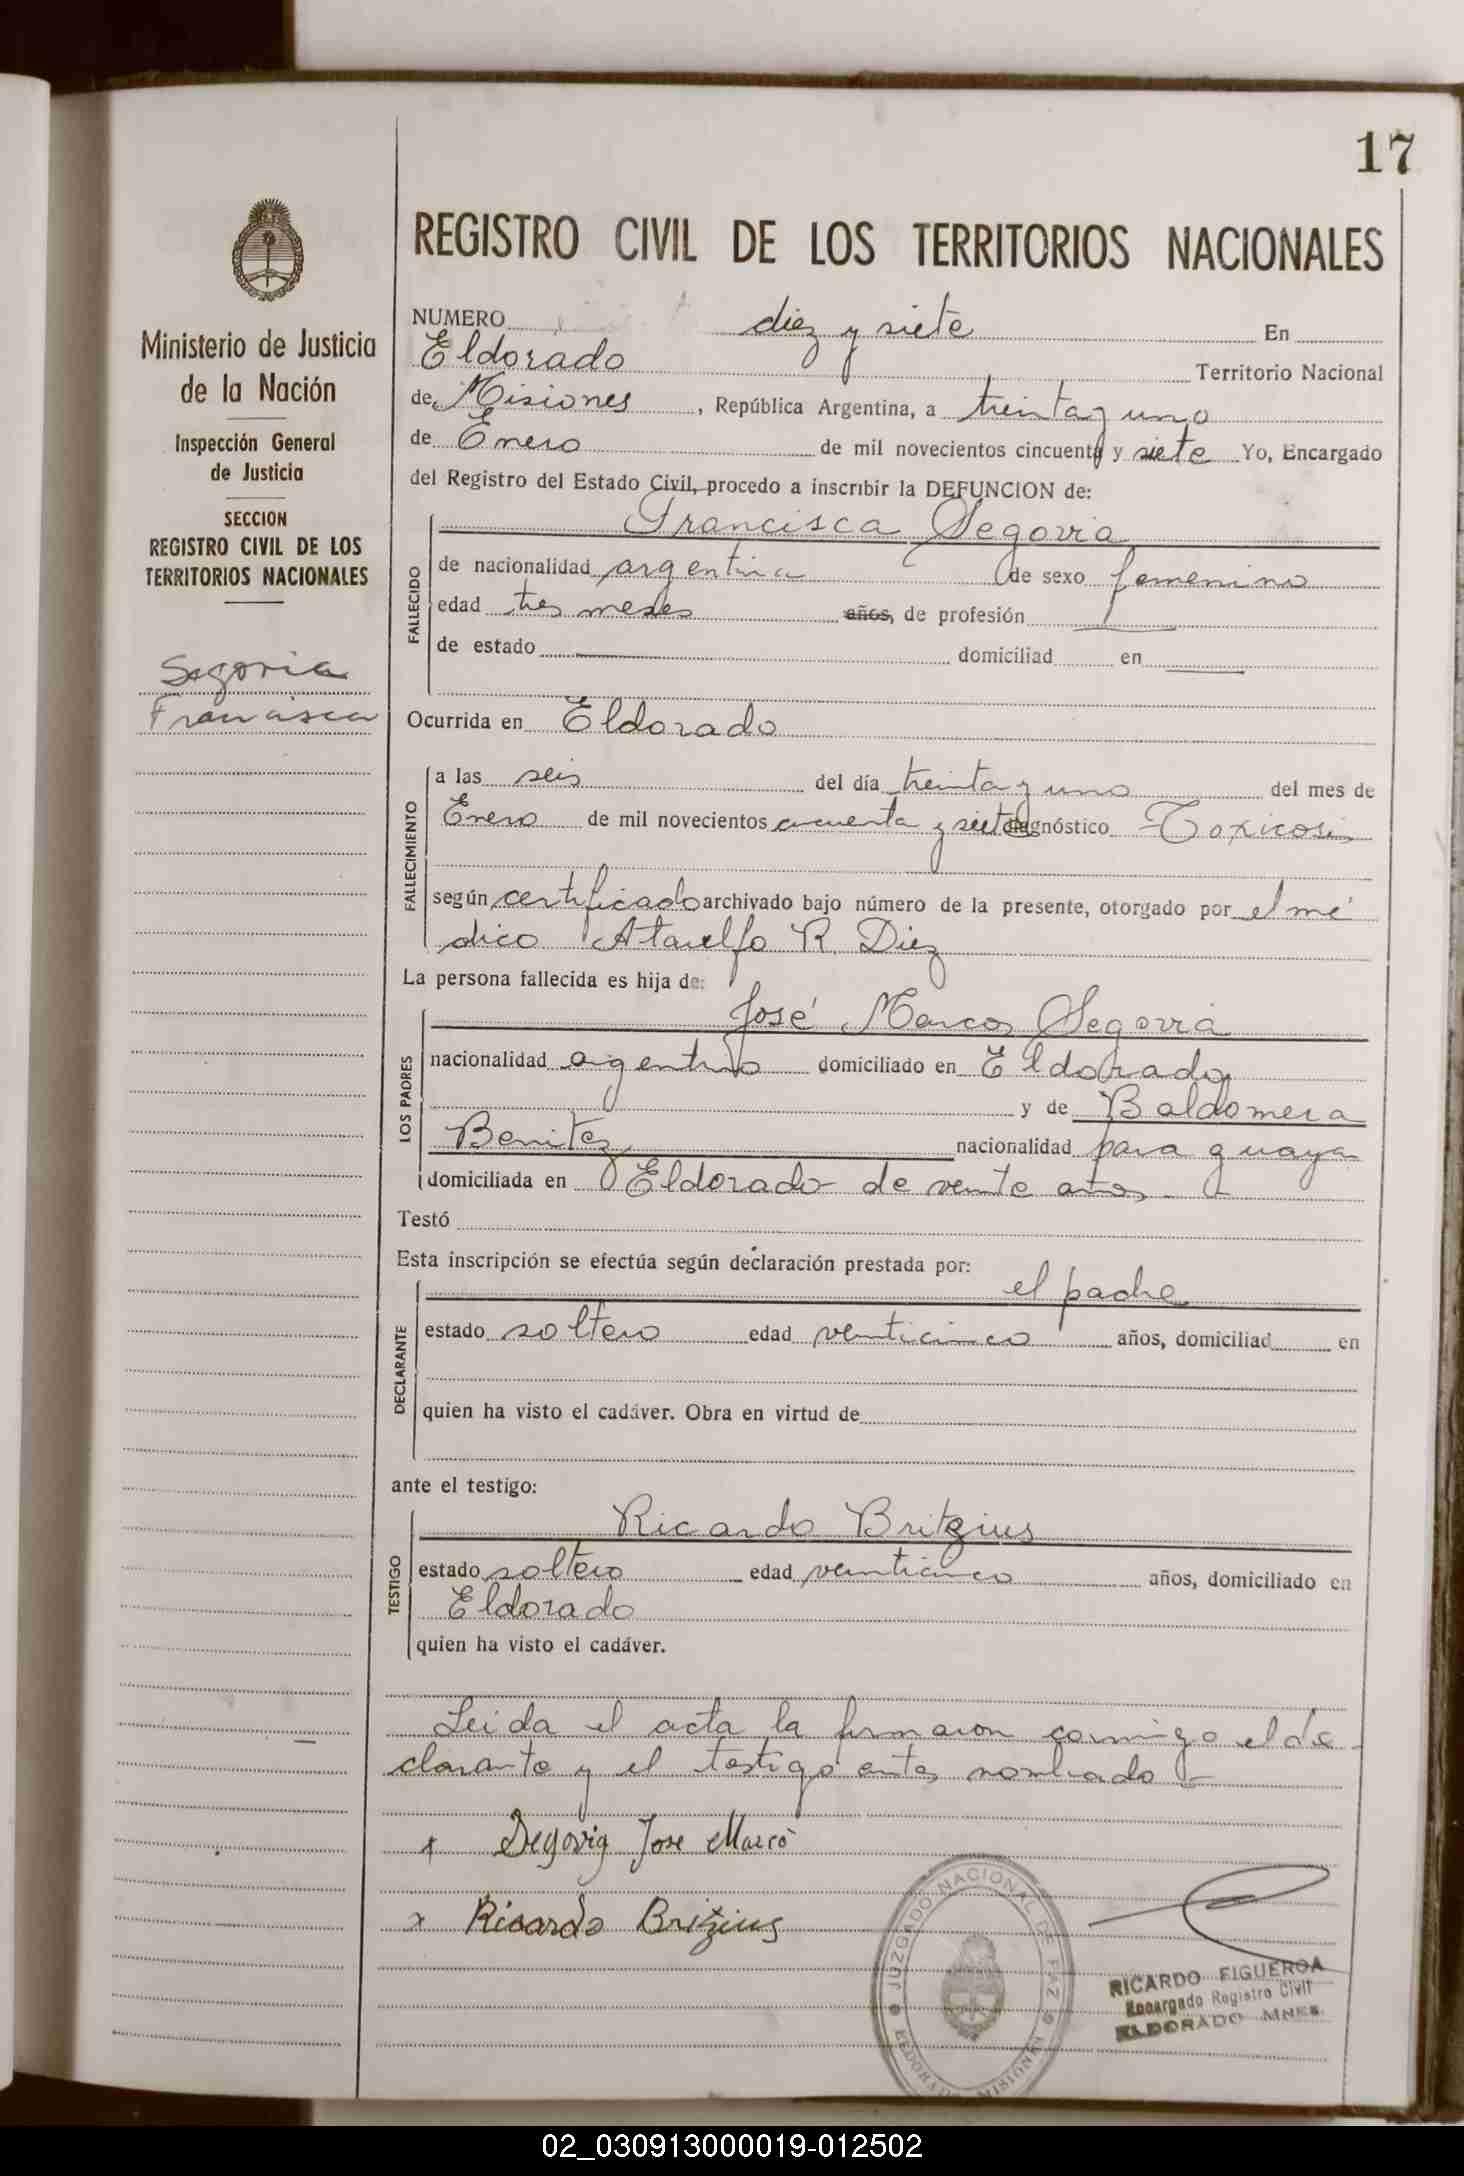 17
REGISTRO CIVIL DE LOS TERRITORIOS NACIONALES
Ministerio de Justicia
de la Nación
Inspección General
de Justicia
SECCION
REGISTRO CIVIL DE LOS
TERRITORIOS NACIONALES
Segovia
Francisca
NUMERO diez y siete En
Eldorado Territorio Nacional
de Misiones, República Argentina, a treinta y uno
de Enero de mil novecientos cincuenta y siete Yo, Encargado
del Registro del Estado Civil, procedo a inscribir la DEFUNCION de:
FALLECIDO
Francisca Segovia
de nacionalidad argentina de sexo femenino
edad tres meses años, de profesión
de estado domiciliad en
Ocurrida en Eldorado
FALLECIMIENTO
a las seis del día treinta y uno del mes de
Enero de mil novecientos cicuenta y siete diagnóstico Toxicosis
según certificado archivado bajo número de la presente, otorgado por el mé
dico Ataulfo R. Diez
La persona fallecida es hija de:
LOS PADRES
José Marcos Segovia
nacionalidad argentino domiciliado en Eldorado
y de Baldomera
Benitez nacionalidad paraguaya
domiciliada en Eldorado de veinte años
Testó
Esta inscripción se efectúa según declaración prestada por:
DECLARANTE
el padre
estado soltero edad venticinco años, domiciliad en
quien ha visto el cadáver. Obra en virtud de
ante el testigo:
TESTIGO
Ricardo Britzius
estado soltero edad veinticinco años, domiciliado en
Eldorado
quien ha visto el cadáver.
Leida el acta la firmaron conmigo el de
clarante y el testigo antes nombrado
x Segovia Jose Marco
x Ricardo Britzius
JUZGADO NACIONAL DE PAZ
ELDORADO MISIONES
RICARDO FIGUEROA
Encargado Registro Civil
ELDORADO MNES.
02_030913000019-012502